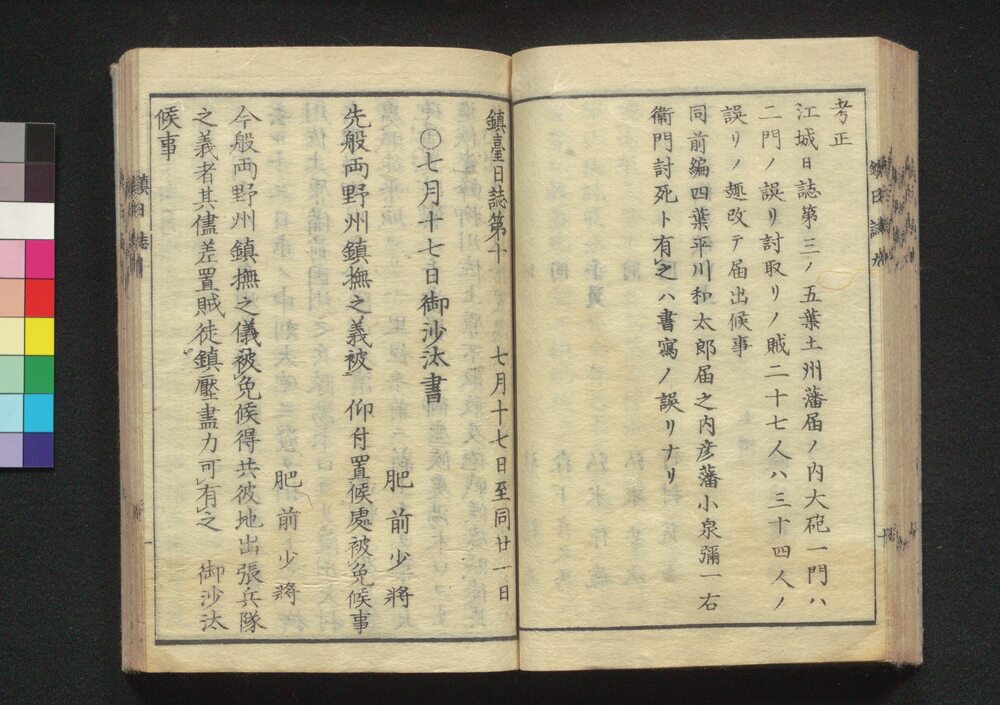 考正
江城日誌第三ノ五葉土州藩届ノ内大砲一門ハ
二門ノ誤リ討取リノ賊二十七人ハ三十四人ノ
誤リノ趣改テ届出候事
同前編四葉平川和太郎届之内彦藩小泉彌一右
衛門討死ト有之ハ書寫ノ誤リナリ
鎮臺日誌第十 七月十七日至同廿一日
〇七月十七日御沙汰書
肥前少將
先般両野州鎮撫之義被 仰付置候處被免候事
肥前少將
今般両野州鎮撫之儀被免候得共彼地出張兵隊
之義者其儘差置賊徒鎮壓盡力可有之 御沙汰
候事